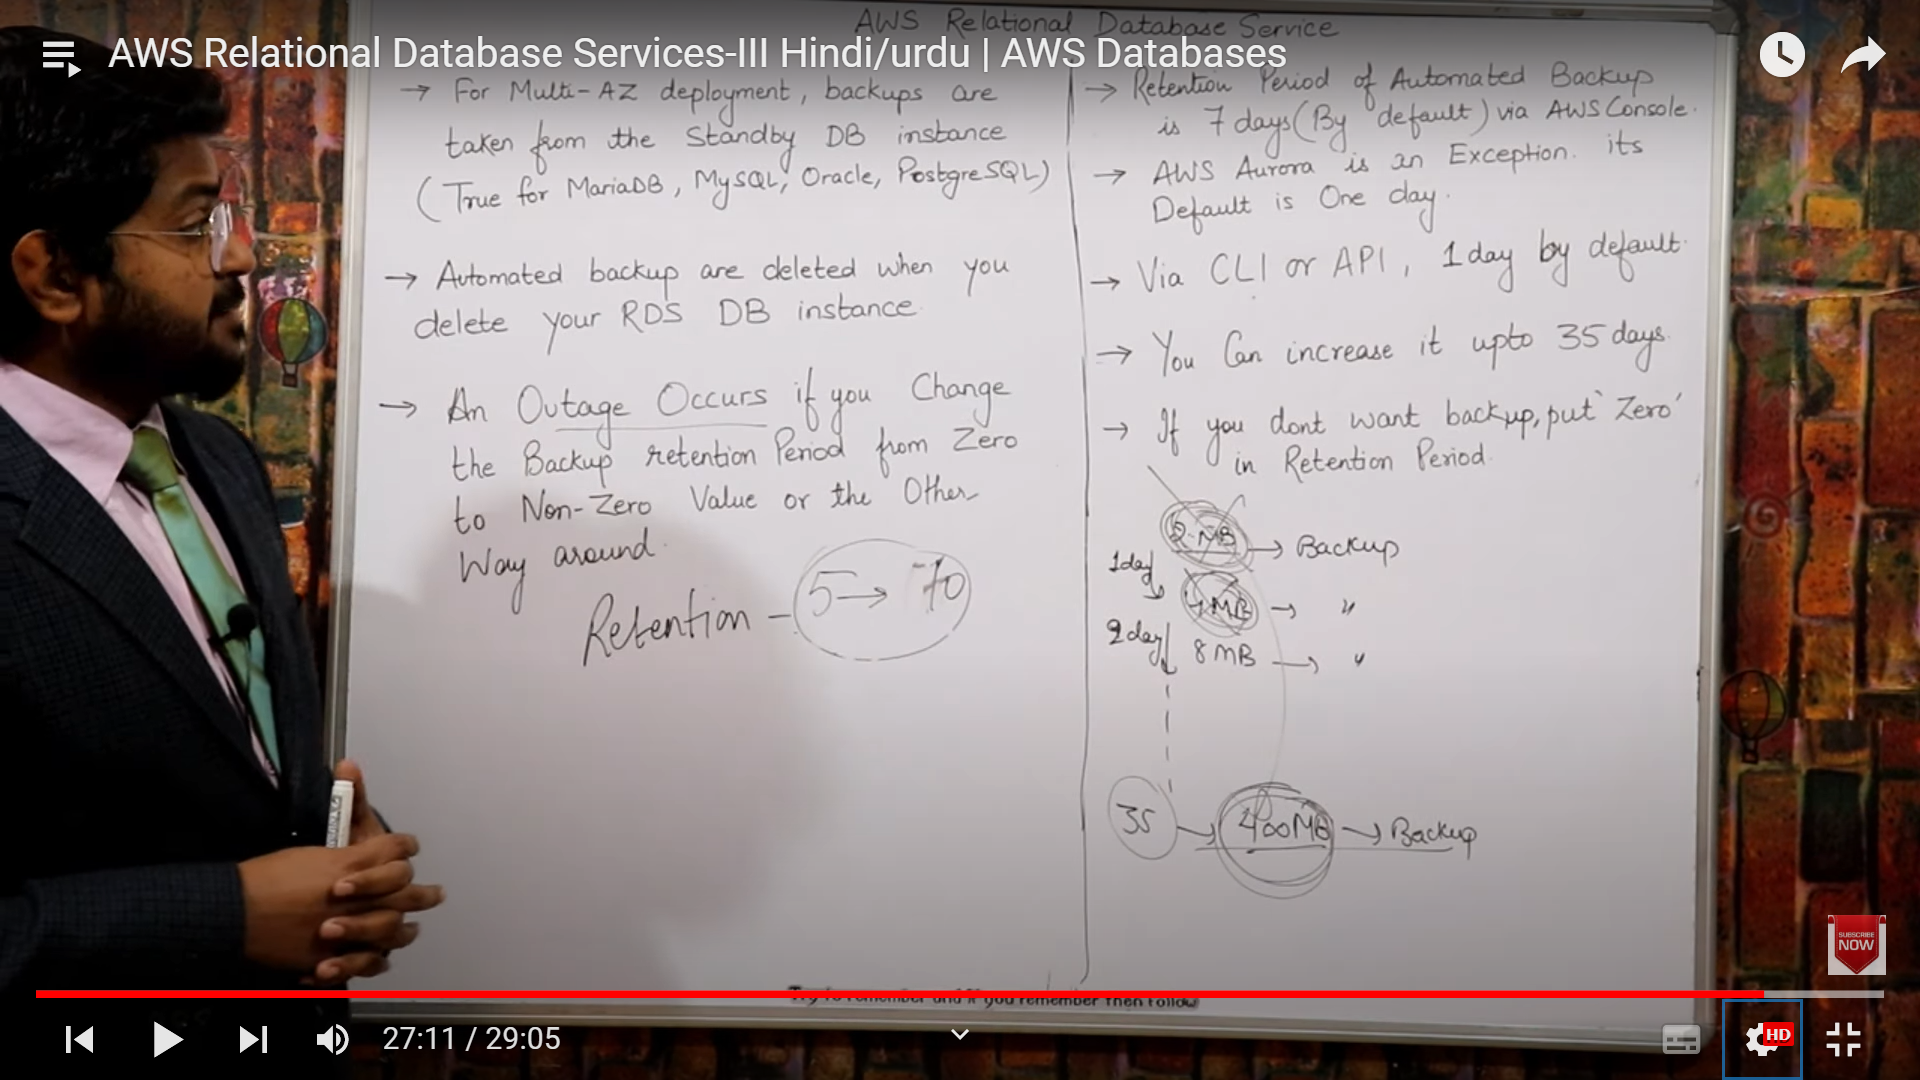 AWS Relational Database Service
AWS Relational Database Services-III Hindi/urdu | AWS Databases
→ For Multi-AZ deployment, backups are
taken from the Standby DB instance
(True for MariaDB, MySQL, Oracle, PostgreSQL)
→ Automated backup are deleted when you
delete your RDS DB instance.
→ An Outage Occurs if you Change
the Backup retention Period from Zero
to Non-Zero Value or the Other
Way around.
Retention - 5 → 10
→ Retention Period of Automated Backup
is 7 days (By default) via AWS Console.
→ AWS Aurora is an Exception. its
Default is One day.
→ Via CLI or API, 1 day by default.
→ You Can increase it upto 35 days.
→ If you dont want backup, put 'Zero'
in Retention Period.
2 MB → Backup
1day
4MB → "
2day
8 MB → "
35 → 400MB → Backup
Try to remember and if you remember then follow
SUBSCRIBE
NOW
27:11 / 29:05
HD